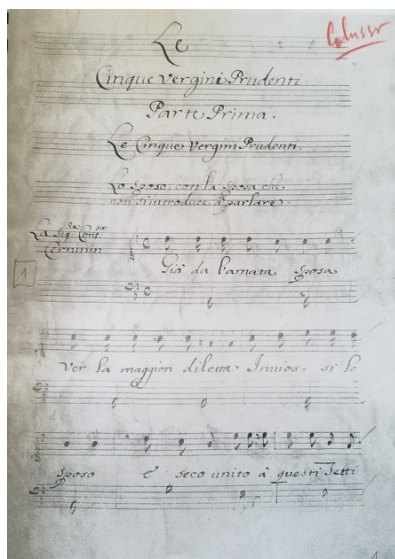 Le
Cinque Vergini Prudenti
Parte Prima.
Le Cinque Vergini Prudenti.
Lo Sposo, con la Sposa che
non s'introduce à parlare.
La Sig.
1
Già da l'amata Sposa
Ver la maggion diletta Inviosi si le
Sposo è seco unito à questi Tetti